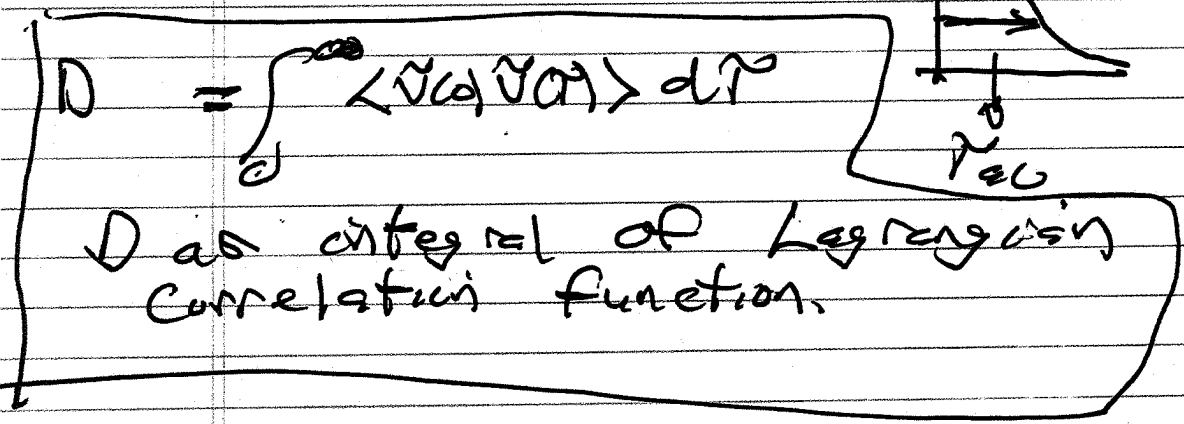 D = ∫₀^∞ <ṽ(0) ṽ(τ)> dτ
τac
D as integral of Lagrangian
correlation function.